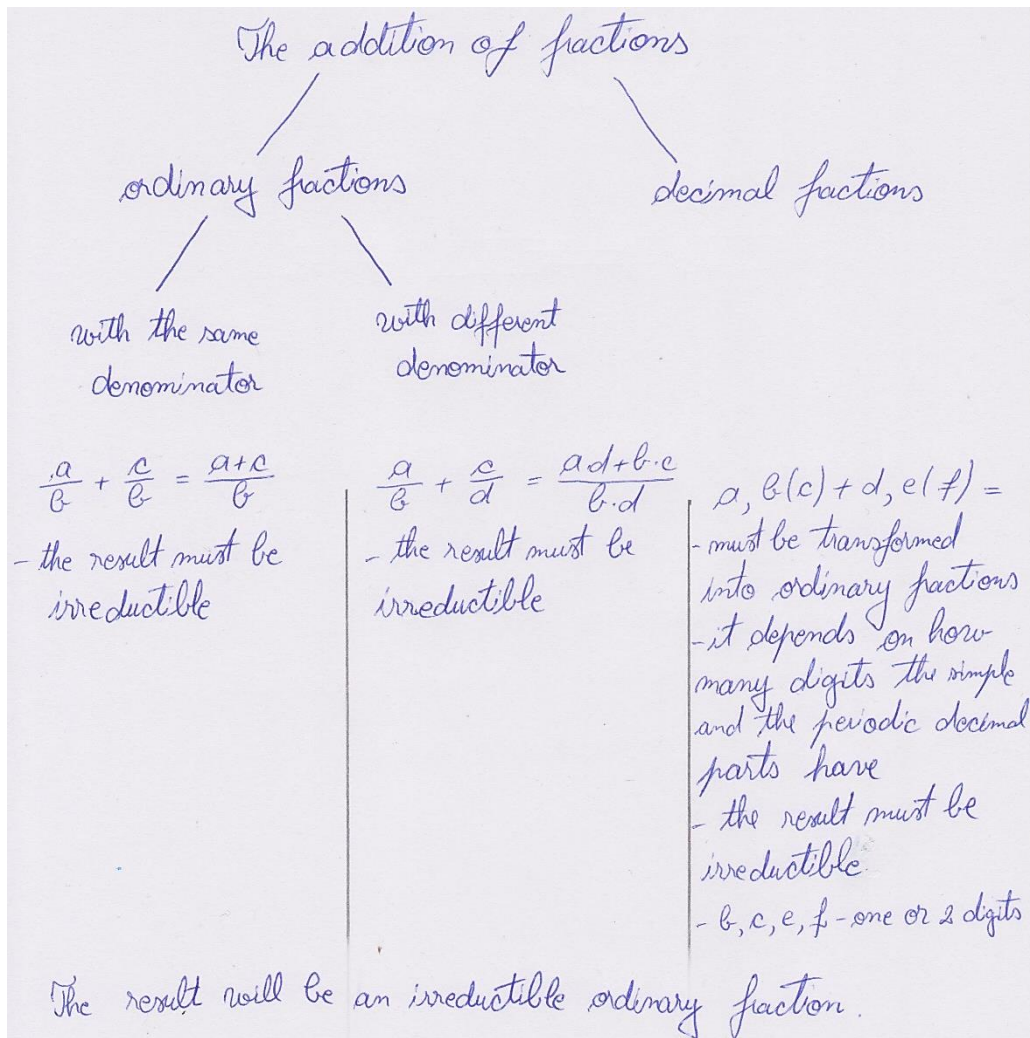 The addition of fractions
ordinary fractions
decimal fractions
with the same
denominator
with different
denominator
a/b + c/b = a+c/b
- the result must be
irreductible
a/b + c/d = ad+b·c/b·d
- the result must be
irreductible
a, b(c) + d, e(f) =
- must be transformed
into ordinary fractions
- it depends on how
many digits the simple
and the periodic decimal
parts have
- the result must be
irreductible
- b, c, e, f - one or 2 digits
The result will be an irreductible ordinary fraction.